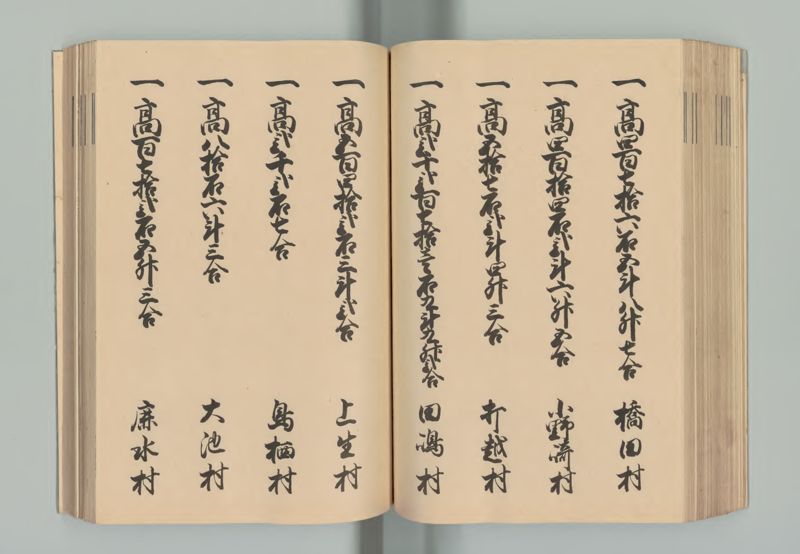 一高四百七拾六石五斗八升七合 橋田村
一高四百拾四石弐斗六升五合 小野崎村
一高五拾七石弐斗四升三合 打越村
一高弐千弐百七拾三石九斗九升弐合 田嶋村
一高五百四拾弐石三斗弐合 上生村
一高弐千弐石七合 鳥栖村
一高八拾石六斗三合 大池村
一高百七拾弐石五升三合 麻水村